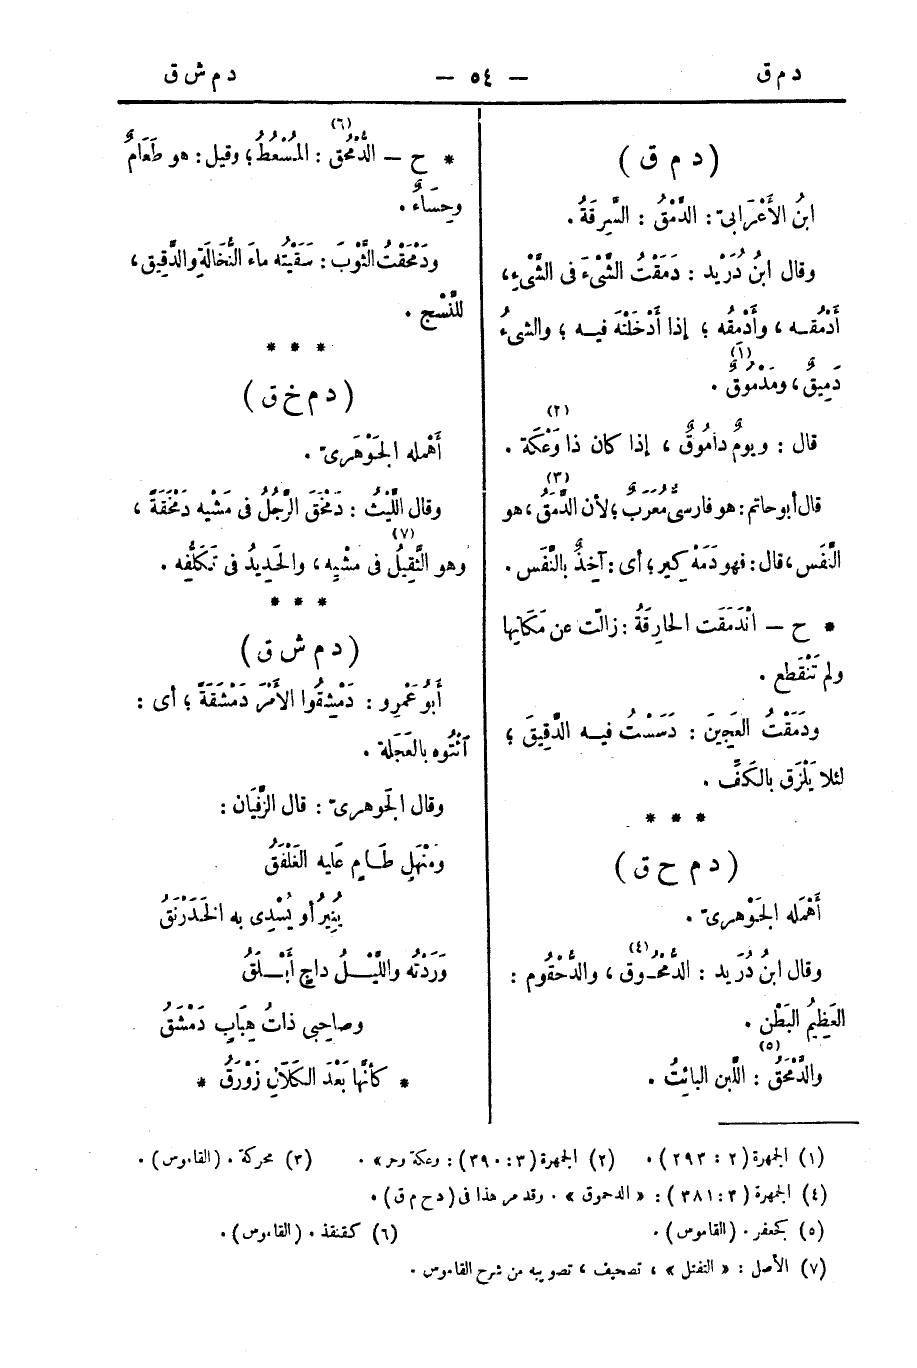 د م ق — ٥٤ — د م ش ق
( د م ق )
ابنُ الأَعْرَابىّ : الدَّمْقُ : السَّرِقَةُ .
وقال ابنُ دُرَيْد : دَمَقْتُ الشَّىْءَ فى الشَّىْءِ ،
أَدْمُقُـه ، وأَدْمِقُه ؛ إذا أَدْخَلْتَه فيـه ؛ والشىءُ
دَمِيقٌ ، ومَدْمُوقٌ (١) .
قال : ويومٌ دامُوقٌ ، إذا كان ذا وَعْكَة (٢) .
قال أبو حاتم : هو فارسىٌّ مُعَرَبٌ ؛ لأن الدَّمَقَ (٣) ، هو
النَّفَس ، قال : فهو دَمَهْ كِير ؛ أى : آخِذٌ بالنَّفَس .
* ح — انْدَمَقَت الحارِقَةُ : زالَت عن مَكَانِها
ولم تَنْقَطع .
ودَمَقْتُ العَجِينَ : دَسَسْتُ فيـه الدَّقِيقَ ؛
لئلا يَلْزَق بالكَفِّ .
* * *
( د م ح ق )
أَهْمَله الجَوْهَرِىّ .
وقال ابنُ دُرَيد : الدُّمْحُـوق (٤) ، والدُّحْقُوم :
العَظِيمُ البَطْن .
والدَّمْحَقُ (٥) : اللَّبن البائِتُ .
* ح — الدُّمْحُق (٦) : المُسْعُطُ ؛ وقيل : هو طَعَامٌ
وحِسَاءٌ .
ودَمْحَقْتُ الثَّوبَ : سَقَيْتُه ماءَ النُّخَالَةِ والدَّقِيق ،
للنَّسْج .
* * *
( د م خ ق )
أَهْمله الجَوْهَرِىّ .
وقال اللَّيثُ : دَمْخَقَ الرَّجُلُ فى مَشْيِه دَمْخَقَةً ،
وهو الثَّقِيلُ (٧) فى مشْيِه ، والحَدِيدُ فى تَكَلُّفِه .
* * *
( د م ش ق )
أَبُو عَمْرِو : دَمْشِقُوا الأَمْرَ دَمْشَقَةً ؛ أى :
آئْتُوه بالعَجَلة .
وقال الجَوهرِىّ : قال الزَّفَيَان :
ومَنْهَلٍ طَـامٍ عَليه الغَلْفَقُ
يُنِيرُ أو يُسْدِى به الخَدَرْنَقُ
وَرَدْتُه واللَّيْـــلُ داجٍ أَبْـلَقُ
وصاحِبى ذاتُ هِبَابٍ دَمْشَقُ
* كأَنَّها بَعْدَ الكَلَالِ زَوْرَقُ *
(١) الجمهرة (٢ : ٢٩٣) . (٢) الجمهرة (٣ : ٣٩٠) : وعكة وحر» . (٣) محركة . (القاموس) .
(٤) الجمهرة (٣ : ٣٨١) : « الدحموق » . وقد مر هذا فى (د ح م ق) .
(٥) كجعفر . (القاموس) . (٦) كقنفذ . (القاموس) .
(٧) الأصل : « التفتل » ، تصحيف ، تصويبه من شرح القاموس .